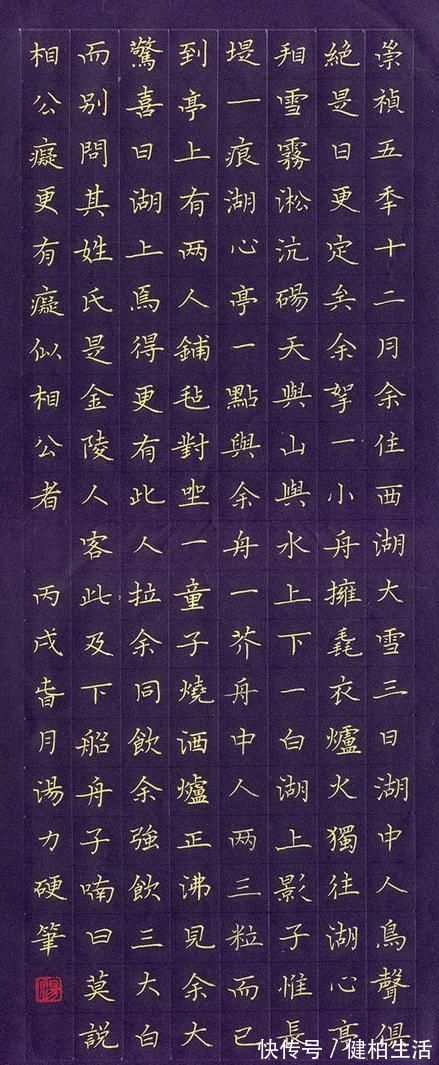 崇禎五季十二月余住西湖大雪三日湖中人鳥聲俱
絕是日更定矣余拏一小舟擁毳衣爐火獨往湖心亭
看雪霧淞沆碭天與山與水上下一白湖上影子惟長
堤一痕湖心亭一點與余舟一芥舟中人两三粒而已
到亭上有两人鋪毡對坐一童子燒酒爐正沸見余大
驚喜曰湖上焉得更有此人拉余同飲余強飲三大白
而別問其姓氏是金陵人客此及下船舟子喃曰莫說
相公癡更有癡似相公者 丙戌春月湯力硬筆
湯
快传号/健柏生活